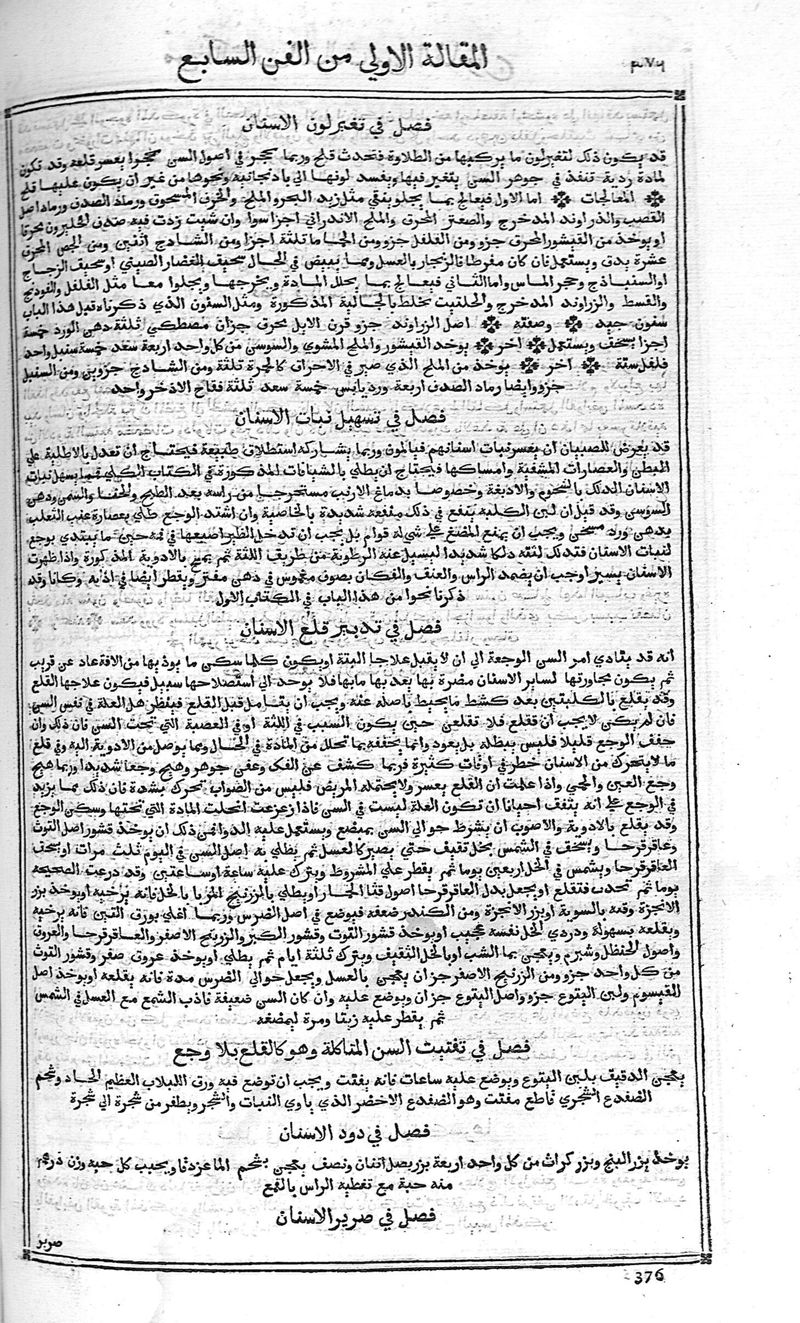 المقالة الاولي من الفن السابع
٣٧٦
فصل في تغيرلون الاسنان
قد يكون ذلك لتغيرلون ما يركبها من الطلاوة فتحدث قلح وربما تحجر في اصول السن تحجرا يعسر قلعه وقد تكون
لمادة ردية تنفذ في جوهر السن يتغير فيها ويفسد لونها الي باذنجانية ونحوها من غير ان يكون عليها قلح
المعالجات اما الاول فيعالج بما يجلو ينقي مثل زبد البحر والملح والخزف المسحوق ورماد الصدف ورماد اصل
القصب والذراوند المدخرج والصعتر المحرق والملح الاندراني اجزا سوا وان شيت زدت فيه صدف الحلزون محرقا
او يوخذ من القيشور المحرق جزو ومن الفلفل جزو ومن الحاما ثلثة اجزا ومن الشاذج اثنين ومن الجص المحرق
عشرة يدق ويستعمل فان كان مفرطا فالزنجار بالعسل ومما يبيض في الحال سحيق الغضار الصيني او سحيق الزجاج
او السنباذج وحجر الماس واما الثاني فيعالج بما يحلل المادة ويخرجها ويجلوا معا مثل الفلفل والفوذنج
والقسط والزراوند المدخرج والحلتيت يخلط بالجالية المذكورة ومثل السنون الذي ذكرناه قبل هذا الباب
سنون جيد وصفته اصل الزراوند جزو قرن الايل محرق جزان مصطكي ثلثة دهن الورد خمسة
اجزا يسحق ويستعمل اخر يوخذ القيشور والملح المشوي والسوسن من كل واحد اربعة سعد خمسة سنبل واحد
فلفل ستة اخر يوخذ من الملح الذي صير في الاحراق كالجرة ثلثة ومن الشاذج جزوين ومن السنبل
جزو وايضا رماد الصدف اربعة ورد يابس خمسة سعد ثلثة فقاح الاذخر واحد
فصل في تسهيل نبات الاسنان
قد يعرض للصبيان ان يعسر نبات اسنانهم فيالمون وربما يشاركه استطلاق طبيعة فيحتاج ان تعدل بالاطلية علي
البطن والعصارات المشفية وامساكها فيحتاج ان يطلي بالشيافات المذكورة في الكتاب الكلي فيما يسهل نبات
الاسنان الدلك بالشحوم والادمغة وخصوصا بدماغ الارنب مستخرجا من راسه بعد الطبخ والحنا والسمن ودهن
السوسن وقد قيل ان لبن الكلبة ينفع في ذلك منفعة شديدة بالخاصية وان اشتد الوجع طلي بعصارة عنب الثعلب
بدهن ورد مسخن ويجب ان يمنع المضغ علي شي له قوام بل يجب ان تدخل الظير اصبعها في فمه حين ما يبتدي يوجع
لنبات الاسنان فتدلك لثته دلكا شديدا ليسيل عنه الرطوبة من طريق اللثة ثم يمرخ بالادوية المذكورة واذا ظهرت
الاسنان يسيرا وجب ان يضمد الراس والعنق والفكان بصوف مغموس في دهن مفتر ويقطر ايضا في اذنه وكانا وقد
ذكرنا نحوا من هذا الباب في الكتاب الاول
فصل في تدبير قلع الاسنان
انه قد يتادي امر السن الوجعة الي ان لا يقبل علاجا البتة او يكون كلما سكن ما يوذ بها من الافة عاد عن قريب
ثم يكون مجاورتها لساير الاسنان مضرة بها يعديها ما بها فلا يوجد الي استصلاحها سبيل فيكون علاجها القلع
وقد يقلع بالكلبتين بعد كشط ما يحيط باصله عنه ويجب ان يتامل قبل القلع فينظر هل العلة في نفس السن
فان لم يكن لا يجب ان تقلع فلا تقلعن حين يكون السبب في اللثة او في العصبة التي تحت السن فان ذلك وان
خفف الوجع قليلا فليس يبطله بل يعود وانما يخففه بما تحلل من المادة في الحال وبما يوصل من الادوية اليه وفي قلع
ما لا يتحرك من الاسنان خطر في اوقات كثيرة فربما كشف عن الفك وعفن جوهر وهيج وجعا شديدا وربما هيج
وجع العين والحمي واذا علمت ان القلع يعسر ولا يحتمله المريض فليس من الصواب تحرك بشدة فان ذلك مما يزيد
في الوجع علي انه يتفق احيانا ان تكون العلة ليست في السن فاذا زعزعت انحلت المادة التي تحتها وسكن الوجع
وقد يقلع بالادوية والاصوب ان يشرط حوالي السن بمبضع ويستعمل عليه الدوا فمن ذلك ان يوخذ قشور اصل التوث
وعاقرقرحا ويسحق في الشمس بخل ثقيف حتي يصير كالعسل ثم يطلي به اصل السن في اليوم ثلث مرات او يسحق
العاقرقرحا ويشمس في الخل اربعين يوما ثم يقطر علي المشروط ويترك عليه ساعة او ساعتين وقد درعت الصحيحة
يوما ثم تجذب فتقلع او يجعل بدل العاقرقرحا اصول قثا الحمار او يطلي بالزرنيخ المربا بالخل فانه يرخيه او يوخذ بزر
الانجرة وقنه بالسوية او بزر الانجرة ومن الكندر ضعفه فيوضع في اصل الضرس وربما اغلي بورق التين فانه يرخيه
ويقلعه بسهولة ودردي الخل نفسه عجيب او يوخذ قشور التوت وقشور الكبر والزرنيخ الاصفر والعاقرقرحا والعروق
واصول الحنظل وشبرم ويعجن بما الشب او بالخل الثقيف ويترك ثلثة ايام ثم يطلي او يوخذ عروق صفر وقشور التوث
من كل واحد جزو ومن الزرنيخ الاصفر جزان يعجن بالعسل ويجعل حوالي الضرس مدة فانه يقلعه او يوخذ اصل
القيسوم ولبن اليتوع جزو واصل اليتوع جزان ويوضع عليه وان كان السن ضعيفة فاذب الشمع مع العسل في الشمس
ثم يقطر عليه زيتا ومرة ليمضغه
فصل في تفتيت السن المتاكلة وهو كالقلع بلا وجع
يعجن الدقيق بلبن اليتوع ويوضع عليه ساعات فانه يفتت ويجب ان توضع فيه ورق اللبلاب العظيم الحاد وشحم
الضفدع الشجري قاطع مفتت وهو الضفدع الاخضر الذي ياوي النبات والشجر ويطفر من شجرة الي شجرة
فصل في دود الاسنان
يوخذ بزر البنج وبزر كراث من كل واحد اربعة بزر بصل اثنان ونصف يعجن بشحم الماعز دقا ويحبب كل حبه وزن درهم
منه حبة مع تغطية الراس بالقمع
فصل في صرير الاسنان
صرير
376